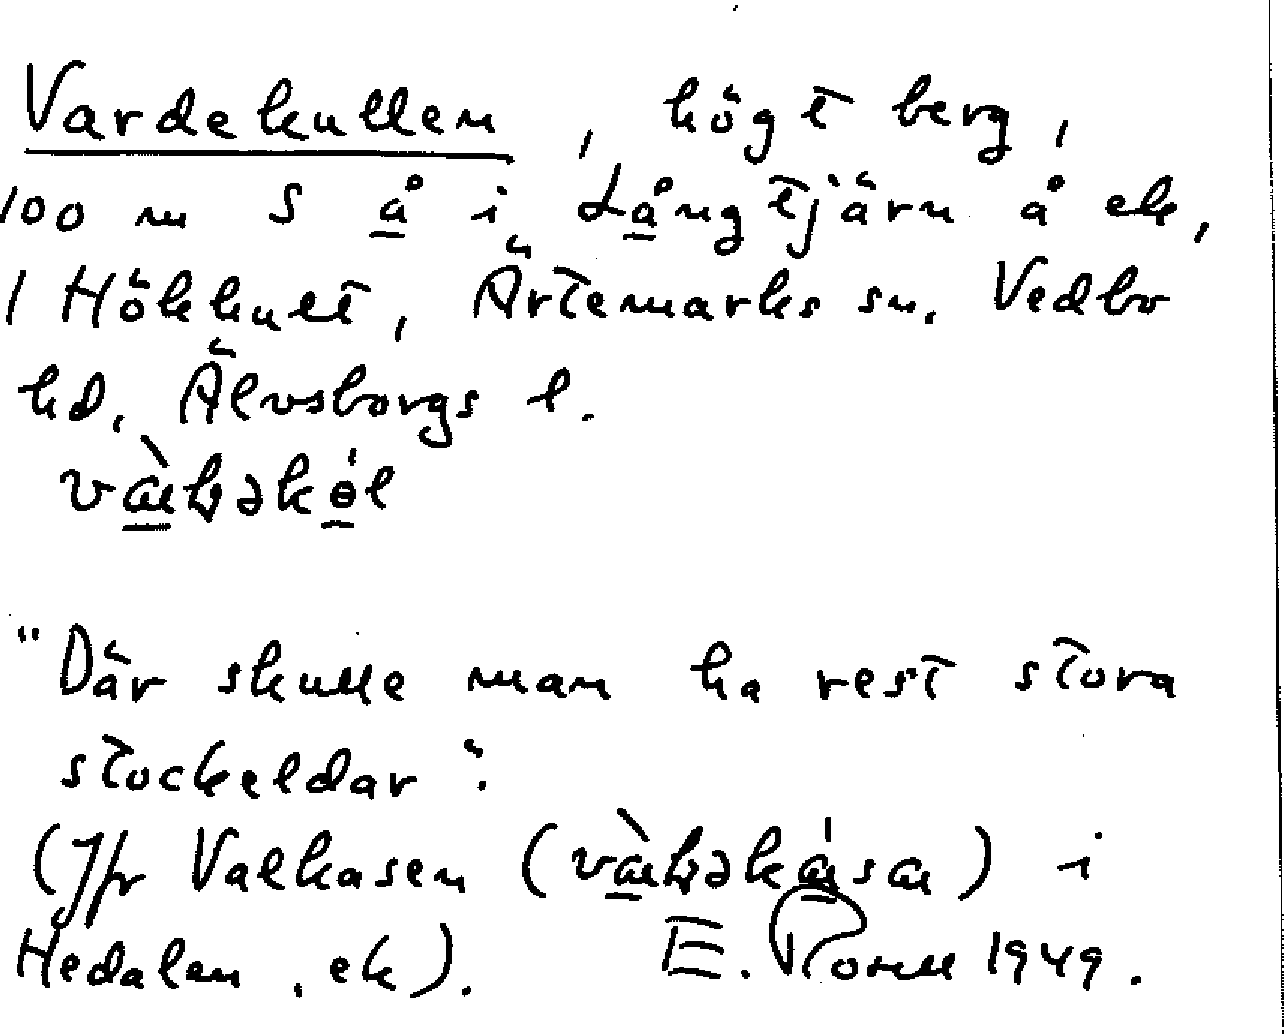 Vardekullen, högt berg,
100 m S å i Långtjärn å ek,
1 Hökhult, Ärtemarks sn. Vedbo
hd. Älvsborgs l.
"Där skulle man ha rest stora
stockeldar".
(Jfr Valkasen i
Hedalen, ek). E. 1949.